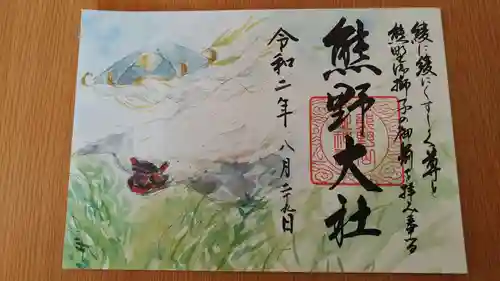 綾に綾にくすしく尊と
熊野御獅子の御前を拝み奉る
熊野大社
令和二年八月二十九日